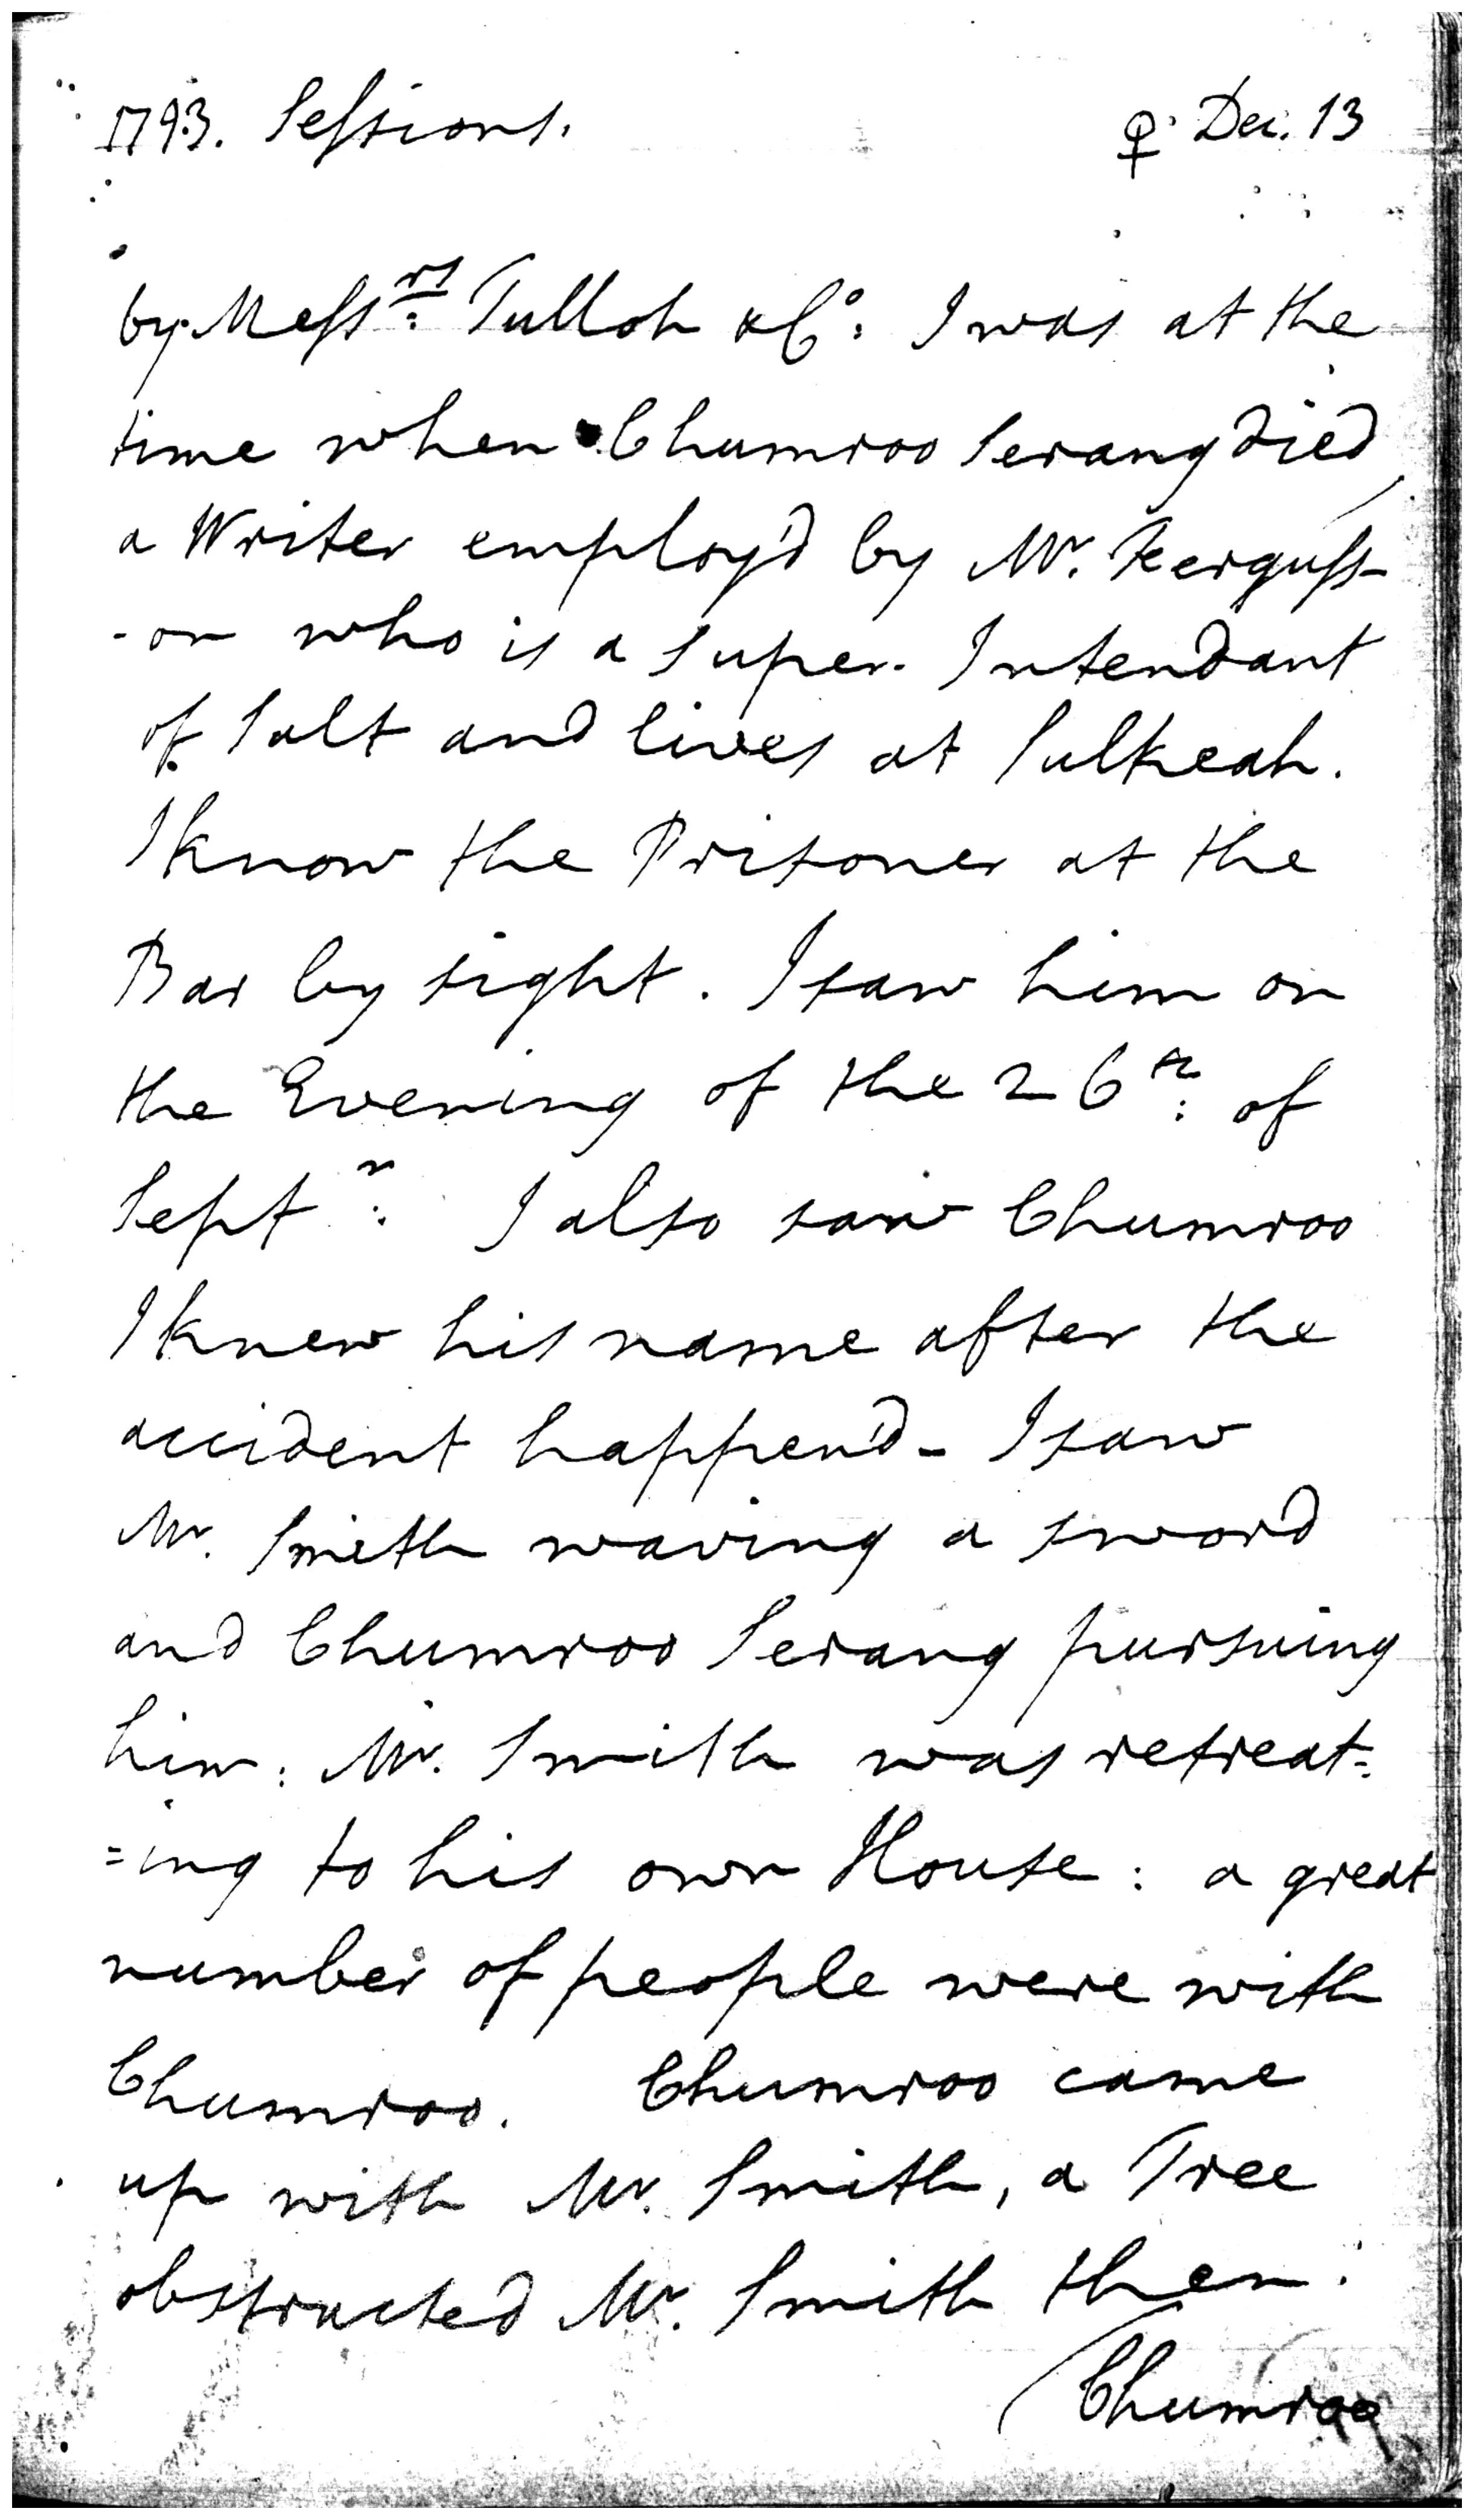 1793. Sessions. ♀ Dec. 13
by Mess.rs Tulloh & Co: I was at the
time when Chumroo Serang died,
a Writer employ'd by Mr. Ferguss-
-on who is a Super-Intendant
of Salt and lives at Sulkeah.
I know the Prisoner at the
Bar by sight. I saw him on
the Evening of the 26th: of
Septr: I also saw Chumroo
I knew his name after the
accident happen'd - I saw
Mr. Smith waving a sword
and Chumroo Serang pursuing
him: Mr. Smith was retreat=
=ing to his own House: a great
number of people were with
Chumroo. Chumroo came
up with Mr. Smith, a Tree
obstructed Mr. Smith then.
Chumroo